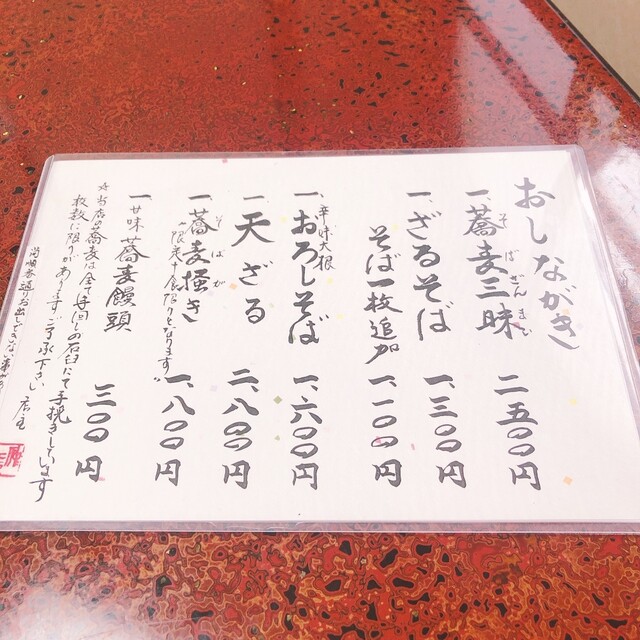 おしながき
一、蕎麦三昧 二、五〇〇円
そばざんまい
一、ざるそば 一、三〇〇円
そば一枚追加 一、一〇〇円
辛味大根
一、おろしそば 一、六〇〇円
一、天ざる 二、八〇〇円
一、蕎麦掻き 一、八〇〇円
そばがき
一、甘味 蕎麦饅頭 三〇〇円
☆当店の蕎麦は全て
にて手挽きしています
枚数に限りがあります ご了承下さい 店主